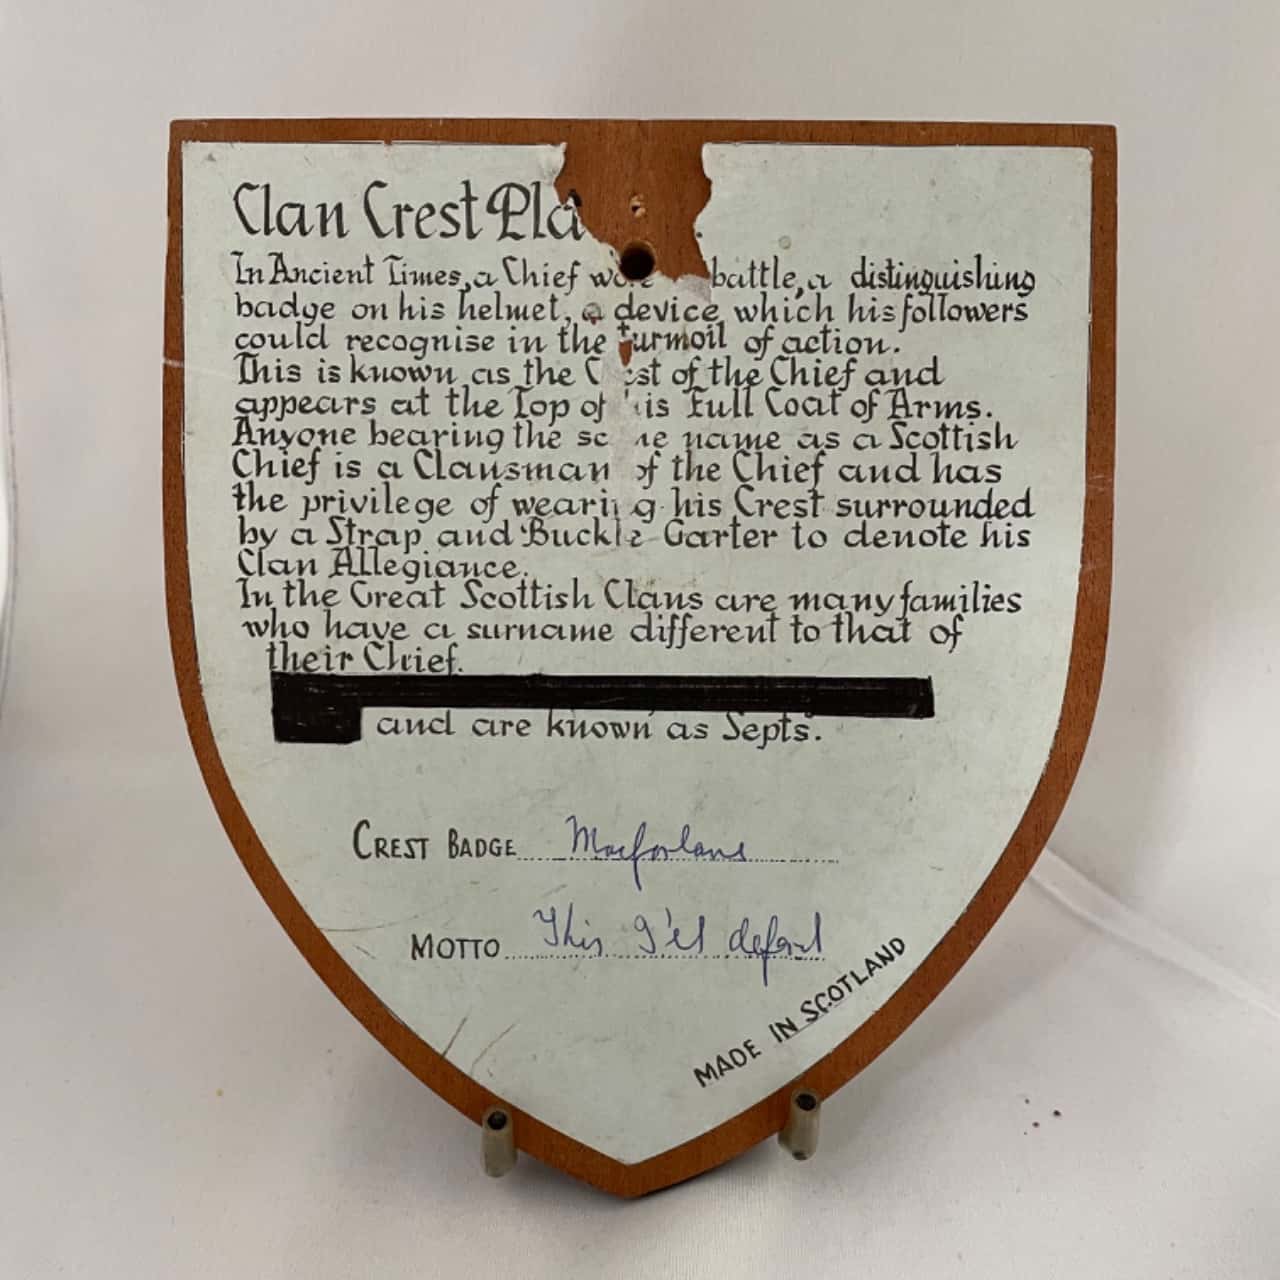 Clan Crest Pla
In Ancient Times, a Chief wore battle, a distinguishing
badge on his helmet, a device which his followers
could recognise in the turmoil of action.
This is known as the C est of the Chief and
appears at the Top of his Full Coat of Arms.
Anyone bearing the same name as a Scottish
Chief is a Clansman of the Chief and has
the privilege of wearing his Crest surrounded
by a Strap and Buckle Garter to denote his
Clan Allegiance.
In the Great Scottish Clans are many families
who have a surname different to that of
their Chief.
and are known as Septs.
CREST BADGE Macfarlane
MOTTO This I'll defend
MADE IN SCOTLAND